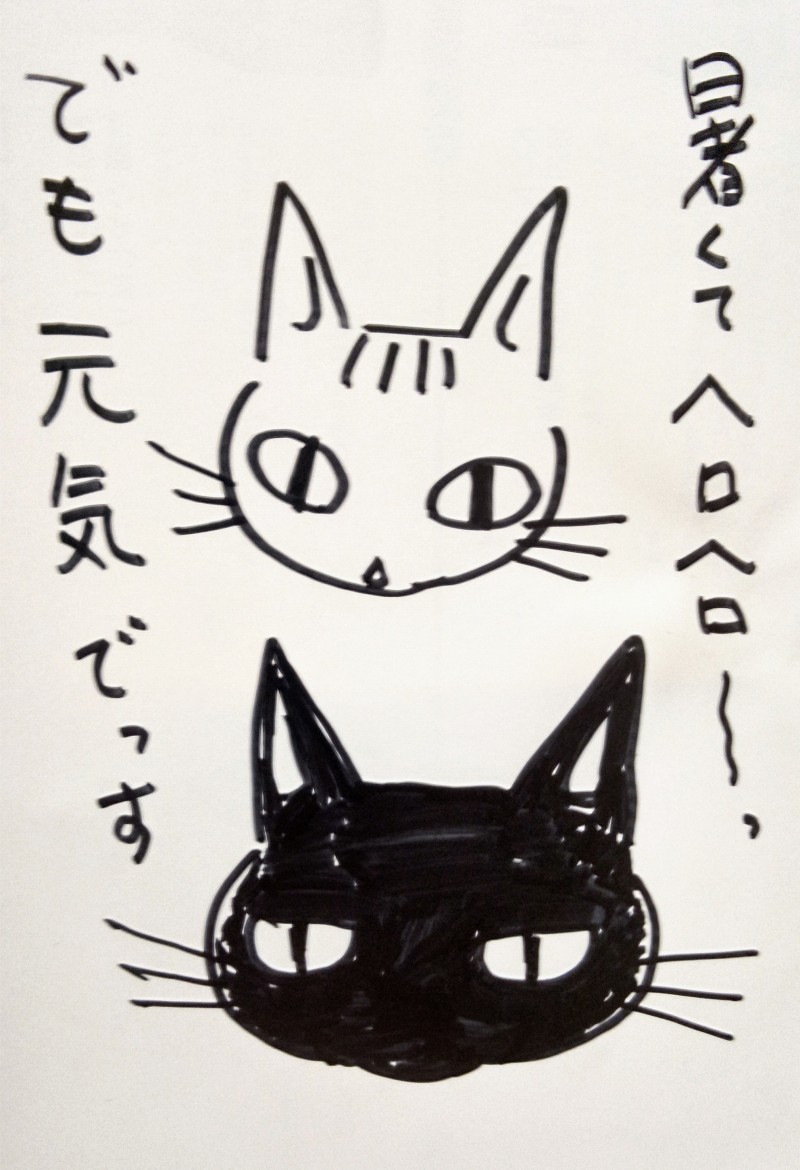 暑くてヘロヘロ〜、
でも元気でっす